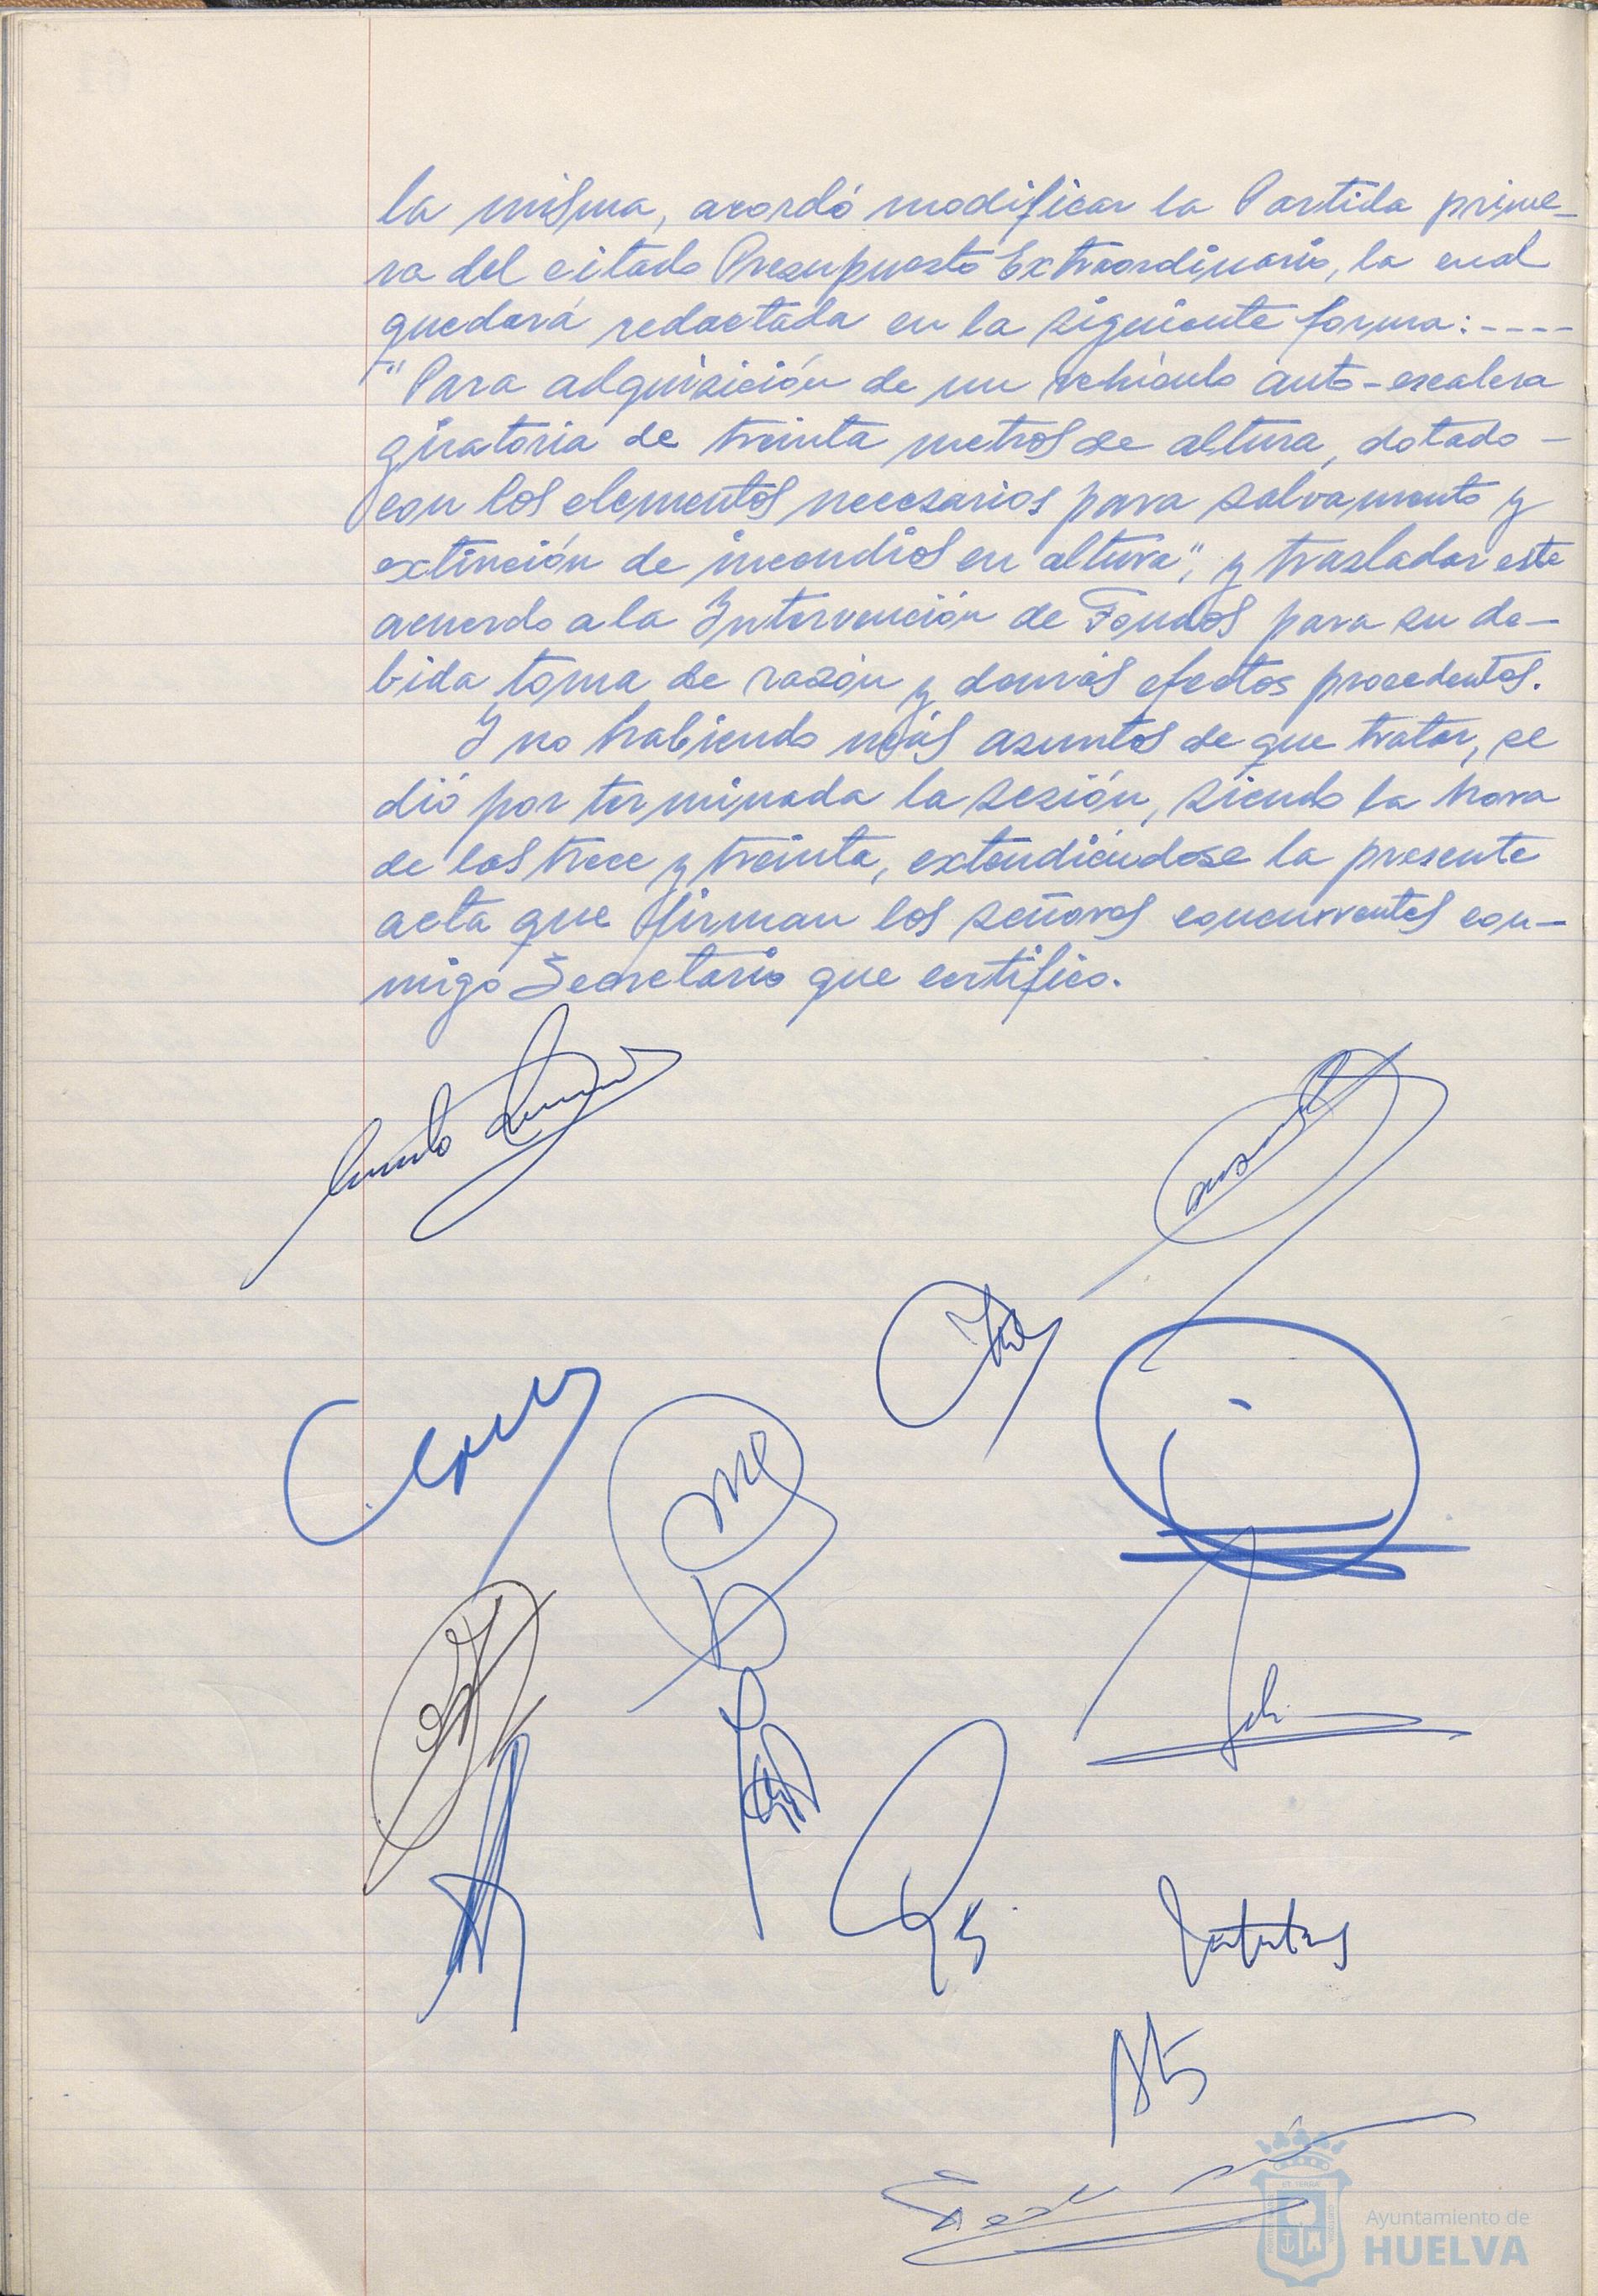 la misma, acordó modificar la Partida prime-
ra del citado Presupuesto Extraordinario, la cual
quedará redactada en la siguiente forma:----
"Para adquisición de un vehículo auto-escalera
giratoria de treinta metros de altura, dotado -
con los elementos necesarios para salvamento y
extinción de incendios en altura", y trasladar este
acuerdo a la Intervención de Fondos para su de-
bida toma de razón y demás efectos procedentes.
Y no habiendo más asuntos de que tratar, se
dió por terminada la sesión, siendo la hora
de las trece y treinta, extendiéndose la presente
acta que firman los señores concurrentes con-
migo Secretario que certifico.
Ayuntamiento de
HUELVA